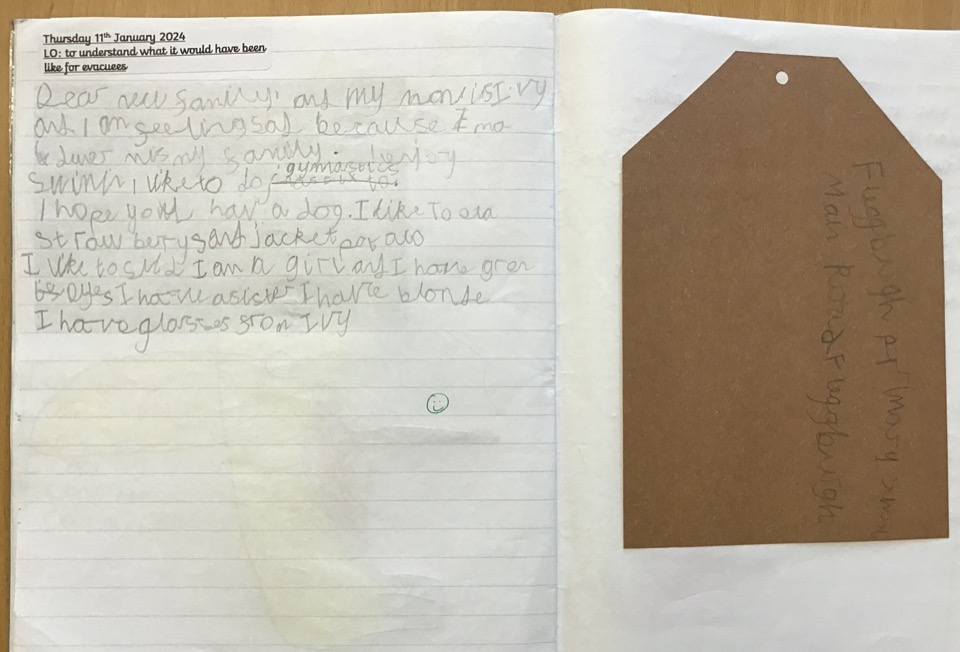 Thursday 11th January 2024
LO: to understand what it would have been
like for evacuees
Dear new family. and my nam is I.vy
and I am feeling sad because I
miss my family. I enjoy
Swimin, I like to do gymnastics
I hope you have a dog. I like To
strow berys and jacket potato
I like to I am a girl and I have gren
eyes I have a sister I have blonde
I have glasses from IVY
Fleggburgh primary
Main Road Fleggburgh